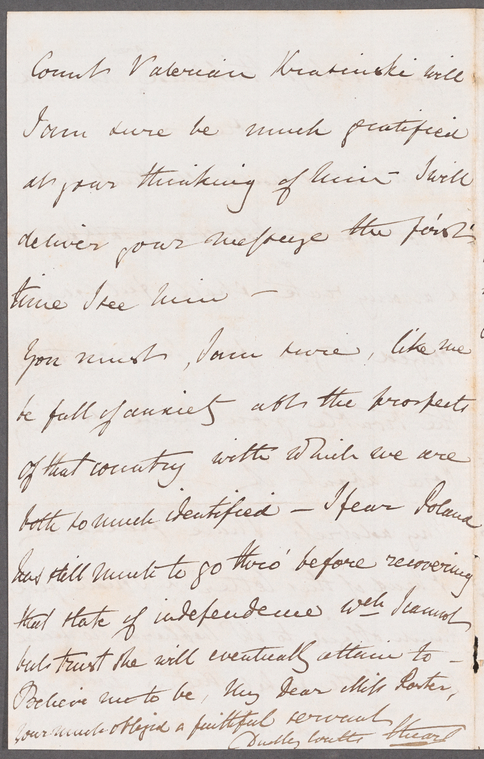 Count Valerian Krasinski will
I am sure be much gratified
at your thinking of him – I will
deliver your message the first
time I see him –
You must, I am sure, like me
be full of anxiety abt the prospects
of that country with which we are
both so much identified – I fear Poland
has still much to go thro' before recovering
that state of independence wch I cannot
but trust she will eventually attain to –
Believe me to be, My Dear Miss Porter,
your much obliged & faithful servant
Dudley Coutts Stuart